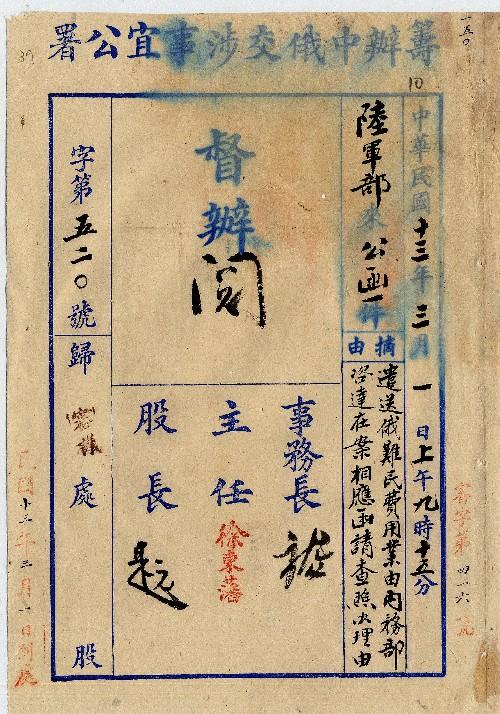 籌辦中俄交涉事宜公署
一五〇
10
39
中華民國十三年三月一日上午九時十五分
陸軍部來公函一件
摘由
遣送俄難民費用業由內務部
咨達在案相應函請查照决理由
督辦
閱
事務長
主任 徐東藩
股長
字第五二〇號歸
處
股
審字第四一六號
民國十三年三月一日到